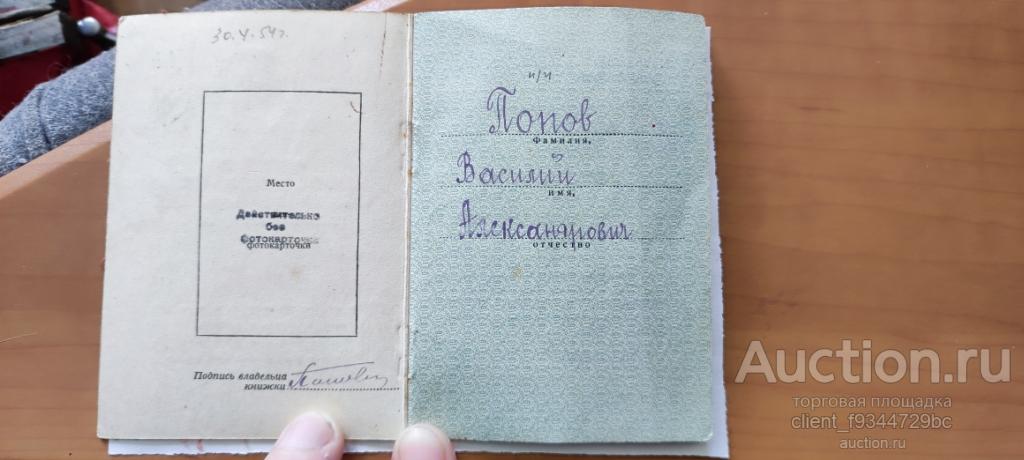 30.V.54г.
Место
Действительно
без
фотокарточки
фотокарточки
Подпись владельца
книжки
н/ч
Попов
Фамилия,
Василий
имя,
Александрович
отчество
Auction.ru
торговая площадка
client_f9344729bc
auction.ru